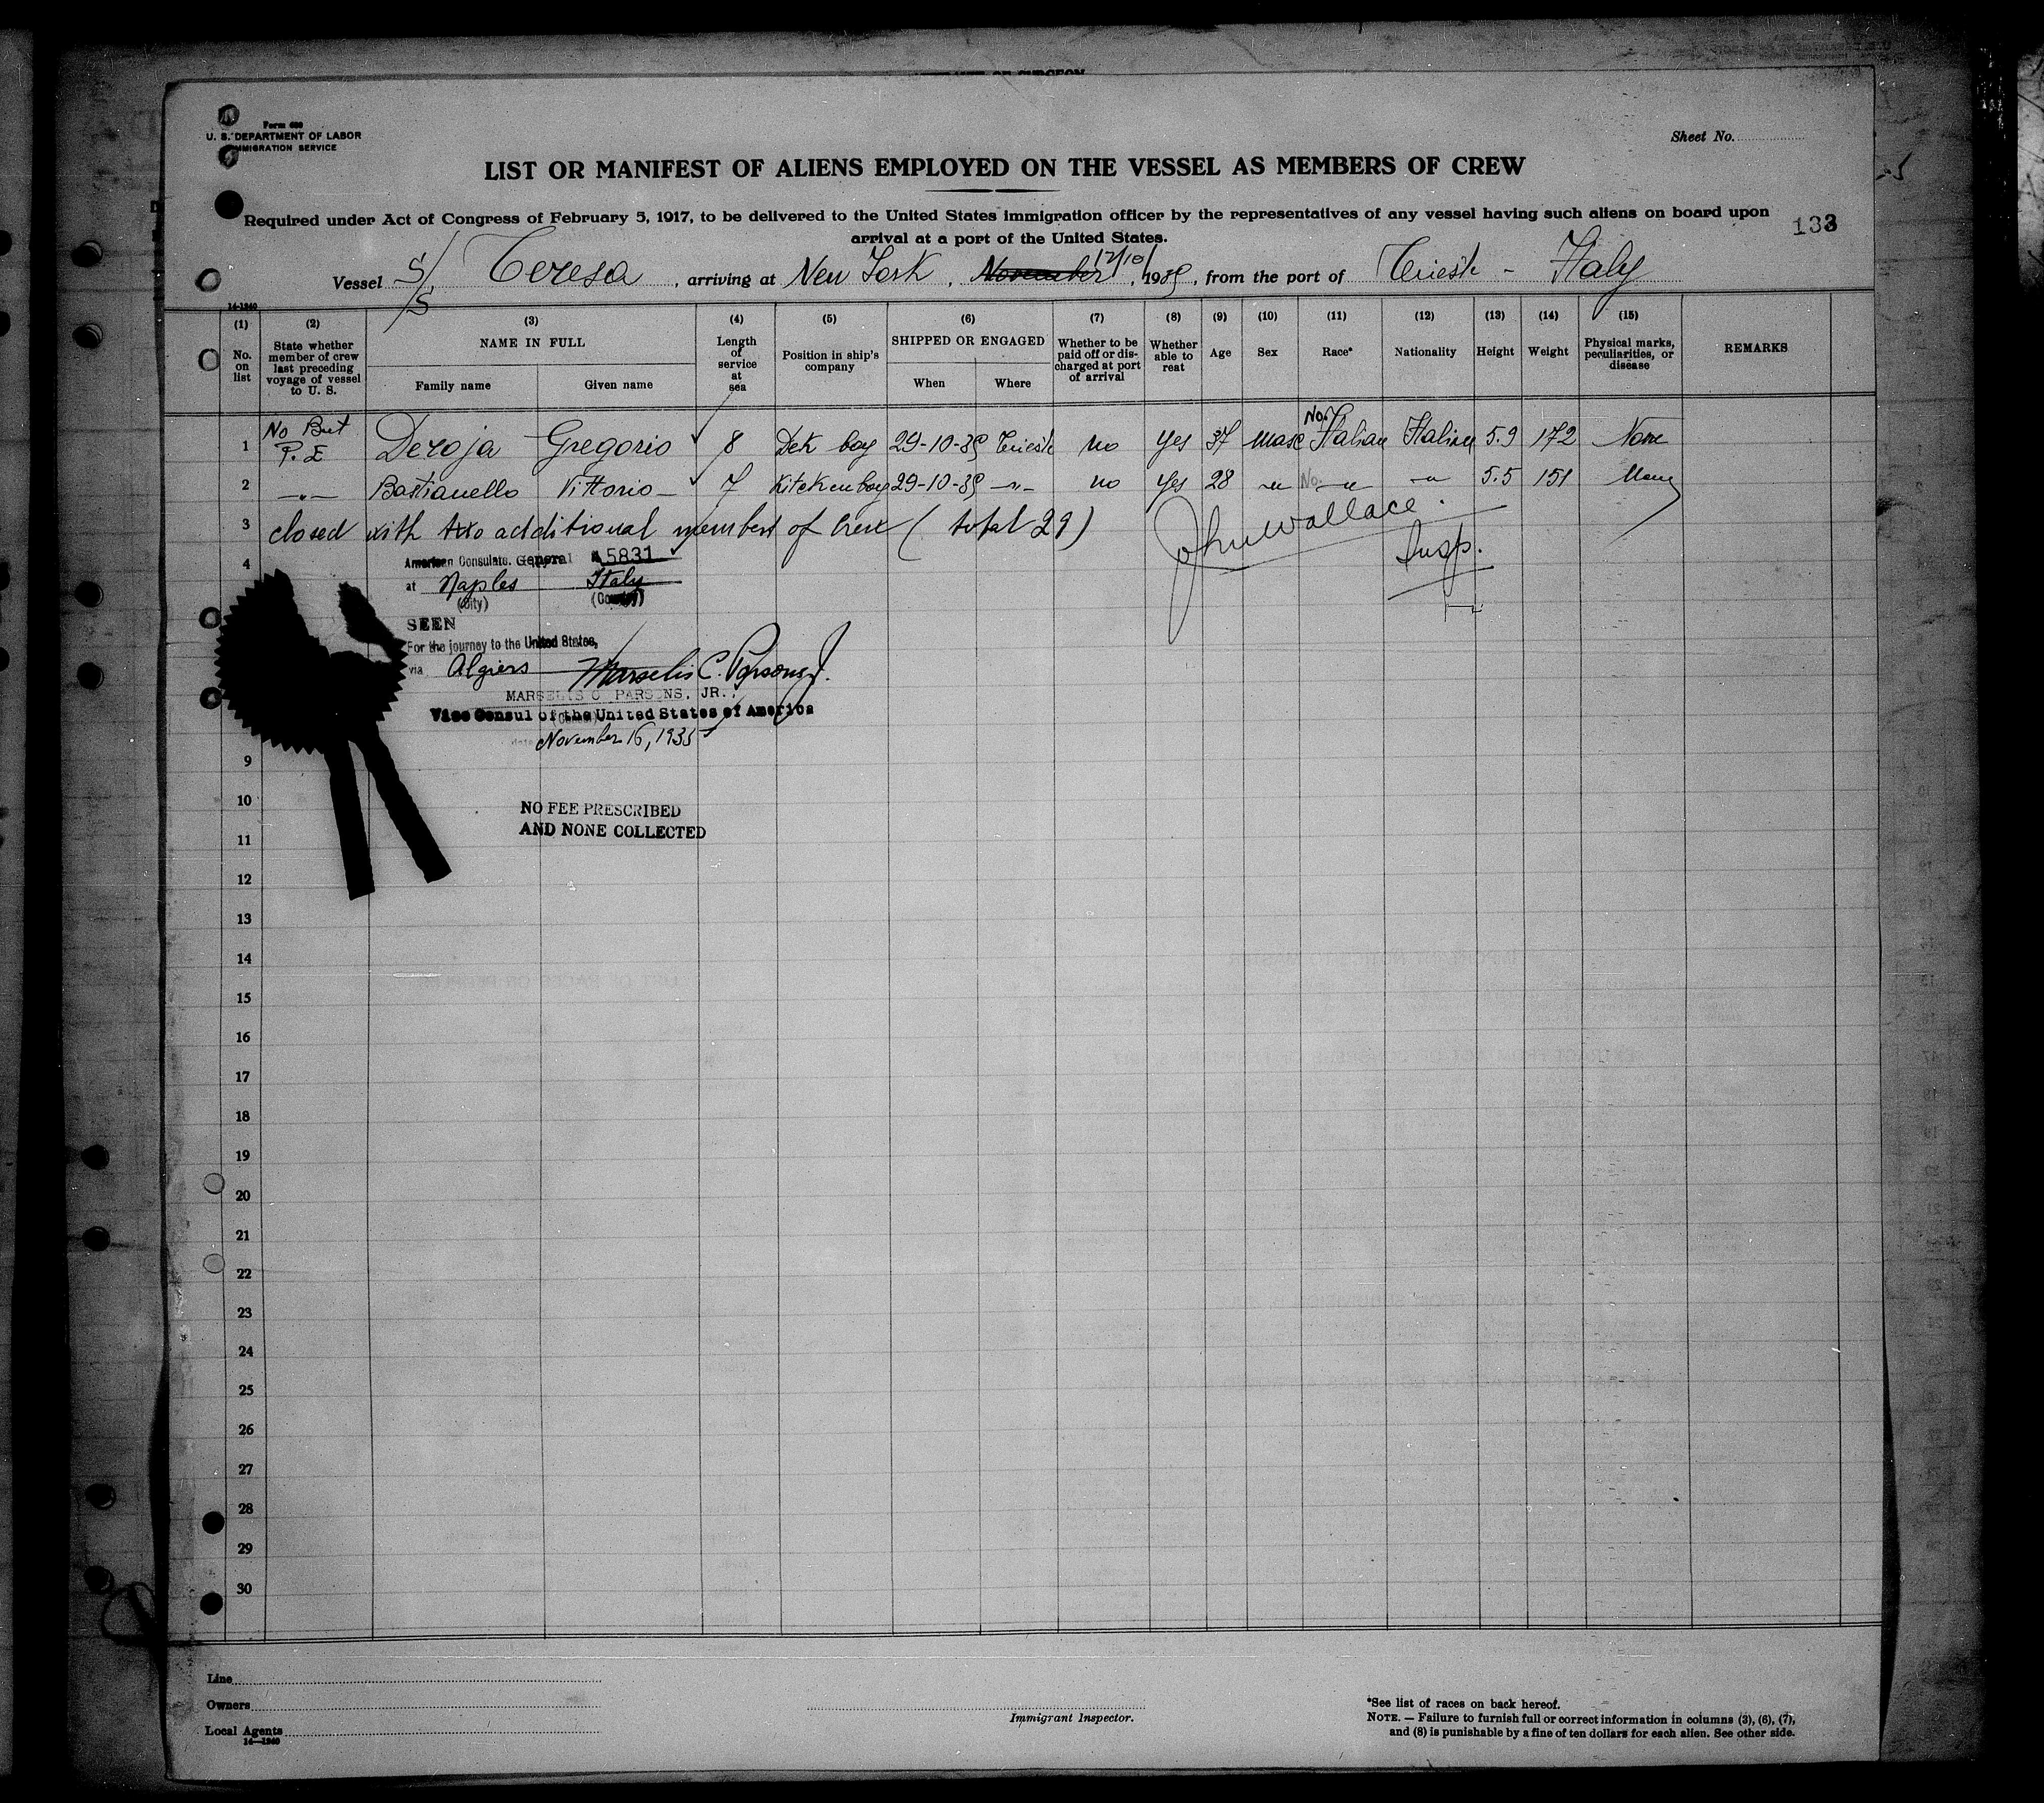 Form 680
U. S. DEPARTMENT OF LABOR
IMMIGRATION SERVICE
Sheet No.
LIST OR MANIFEST OF ALIENS EMPLOYED ON THE VESSEL AS MEMBERS OF CREW
Required under Act of Congress of February 5, 1917, to be delivered to the United States immigration officer by the representatives of any vessel having such aliens on board upon
arrival at a port of the United States.
133
Vessel S/S Teresa, arriving at New York, November 12/10/, 1935, from the port of Trieste - Italy
14-1240
(1) (2) (3) (4) (5) (6) (7) (8) (9) (10) (11) (12) (13) (14) (15)
No. on list
State whether member of crew last preceding voyage of vessel to U. S.
NAME IN FULL
Family name
Given name
Length of service at sea
Position in ship's company
SHIPPED OR ENGAGED
When
Where
Whether to be paid off or discharged at port of arrival
Whether able to reat
Age
Sex
Race*
Nationality
Height
Weight
Physical marks, peculiarities, or disease
REMARKS
1 No But P.E Deroja Gregorio 8 Dek boy 29-10-35 Trieste no yes 37 masc No. Italian Italian 5.9 172 None
2 -"- Bastianello Vittorio - 7 Kitckenboy 29-10-35 -"- no yes 28 -"- No. -"- -"- 5.5 151 None
3 closed with two additional members of Crew ( total 29 )
John Wallace.
Insp.
4
American Consulate. General 5831
at Naples Italy
(City) (Country)
SEEN
For the journey to the United States,
via Algiers Marselis C. Parsons Jr.
MARSELIS C. PARSONS, JR.,
Vice Consul of the United States of America
date November 16, 1935
9
10
NO FEE PRESCRIBED
AND NONE COLLECTED
11
12
13
14
15
16
17
18
19
20
21
22
23
24
25
26
27
28
29
30
Line
Owners
Local Agents
14-1240
Immigrant Inspector.
*See list of races on back hereof.
NOTE. — Failure to furnish full or correct information in columns (3), (6), (7),
and (8) is punishable by a fine of ten dollars for each alien. See other side.